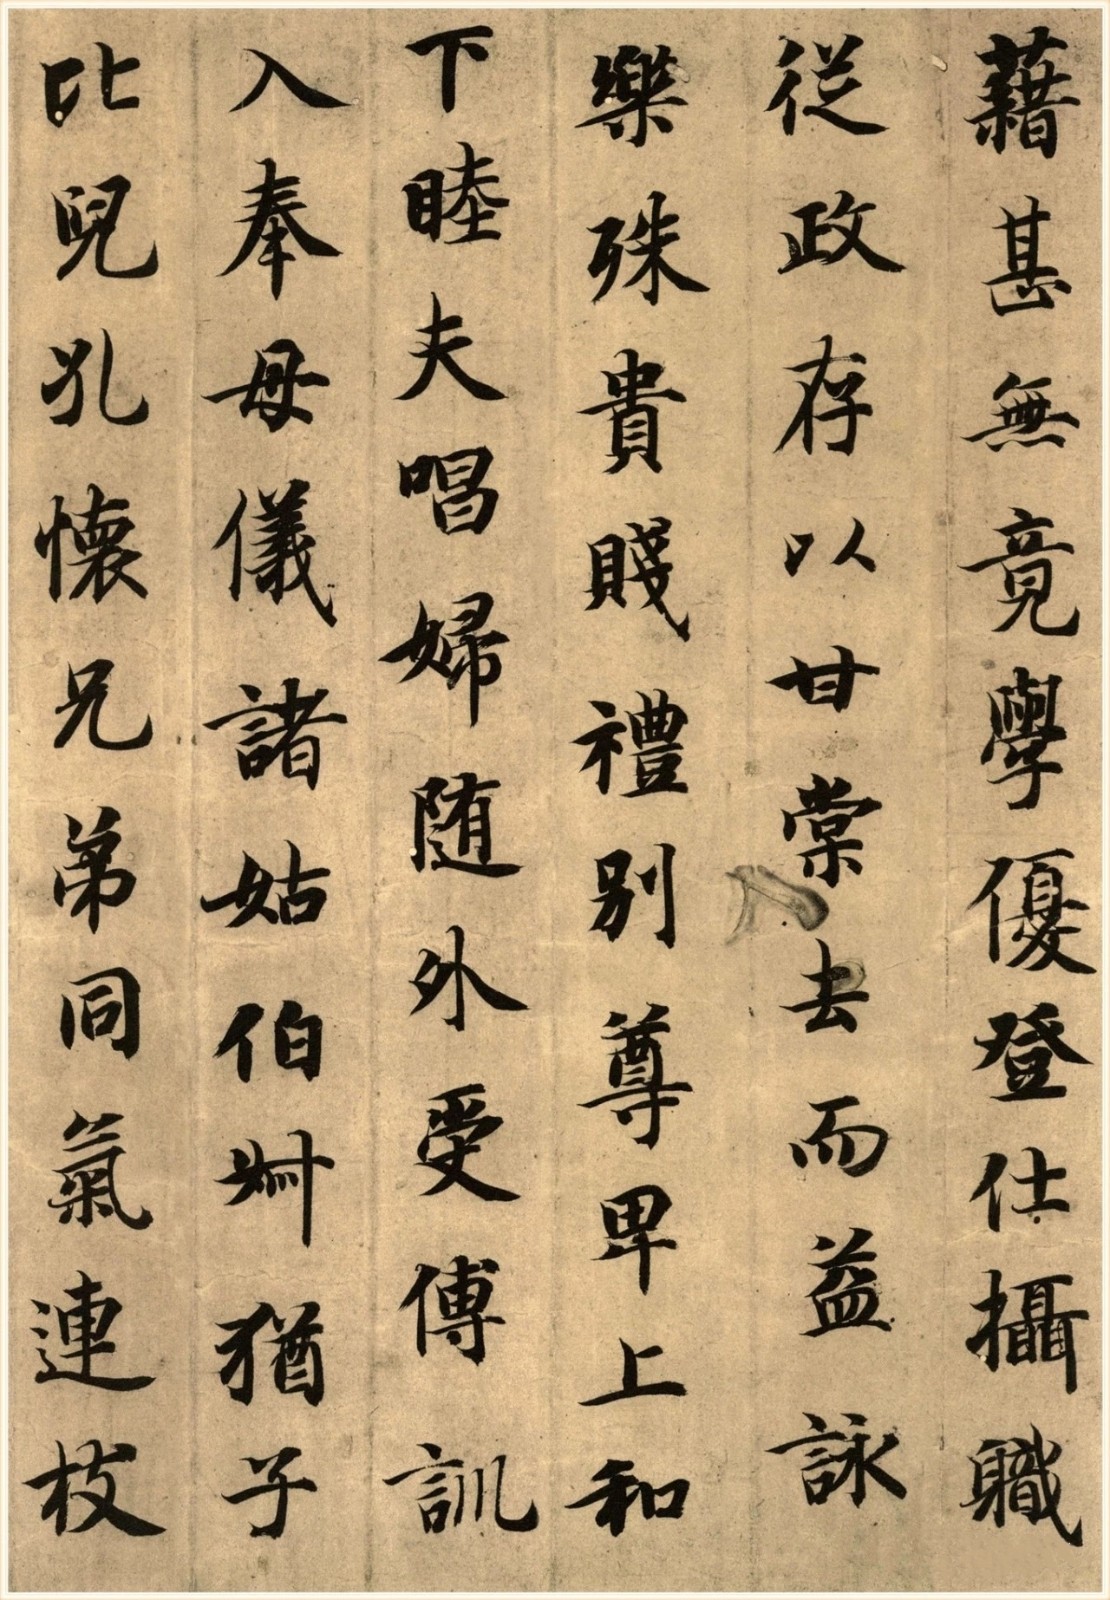 藉甚無竟學優登仕攝職
從政存以甘棠去而益詠
樂殊貴賤禮別尊卑上和
下睦夫唱婦随外受傅訓
入奉母儀諸姑伯叔猶子
比兒孔懐兄弟同氣連枝